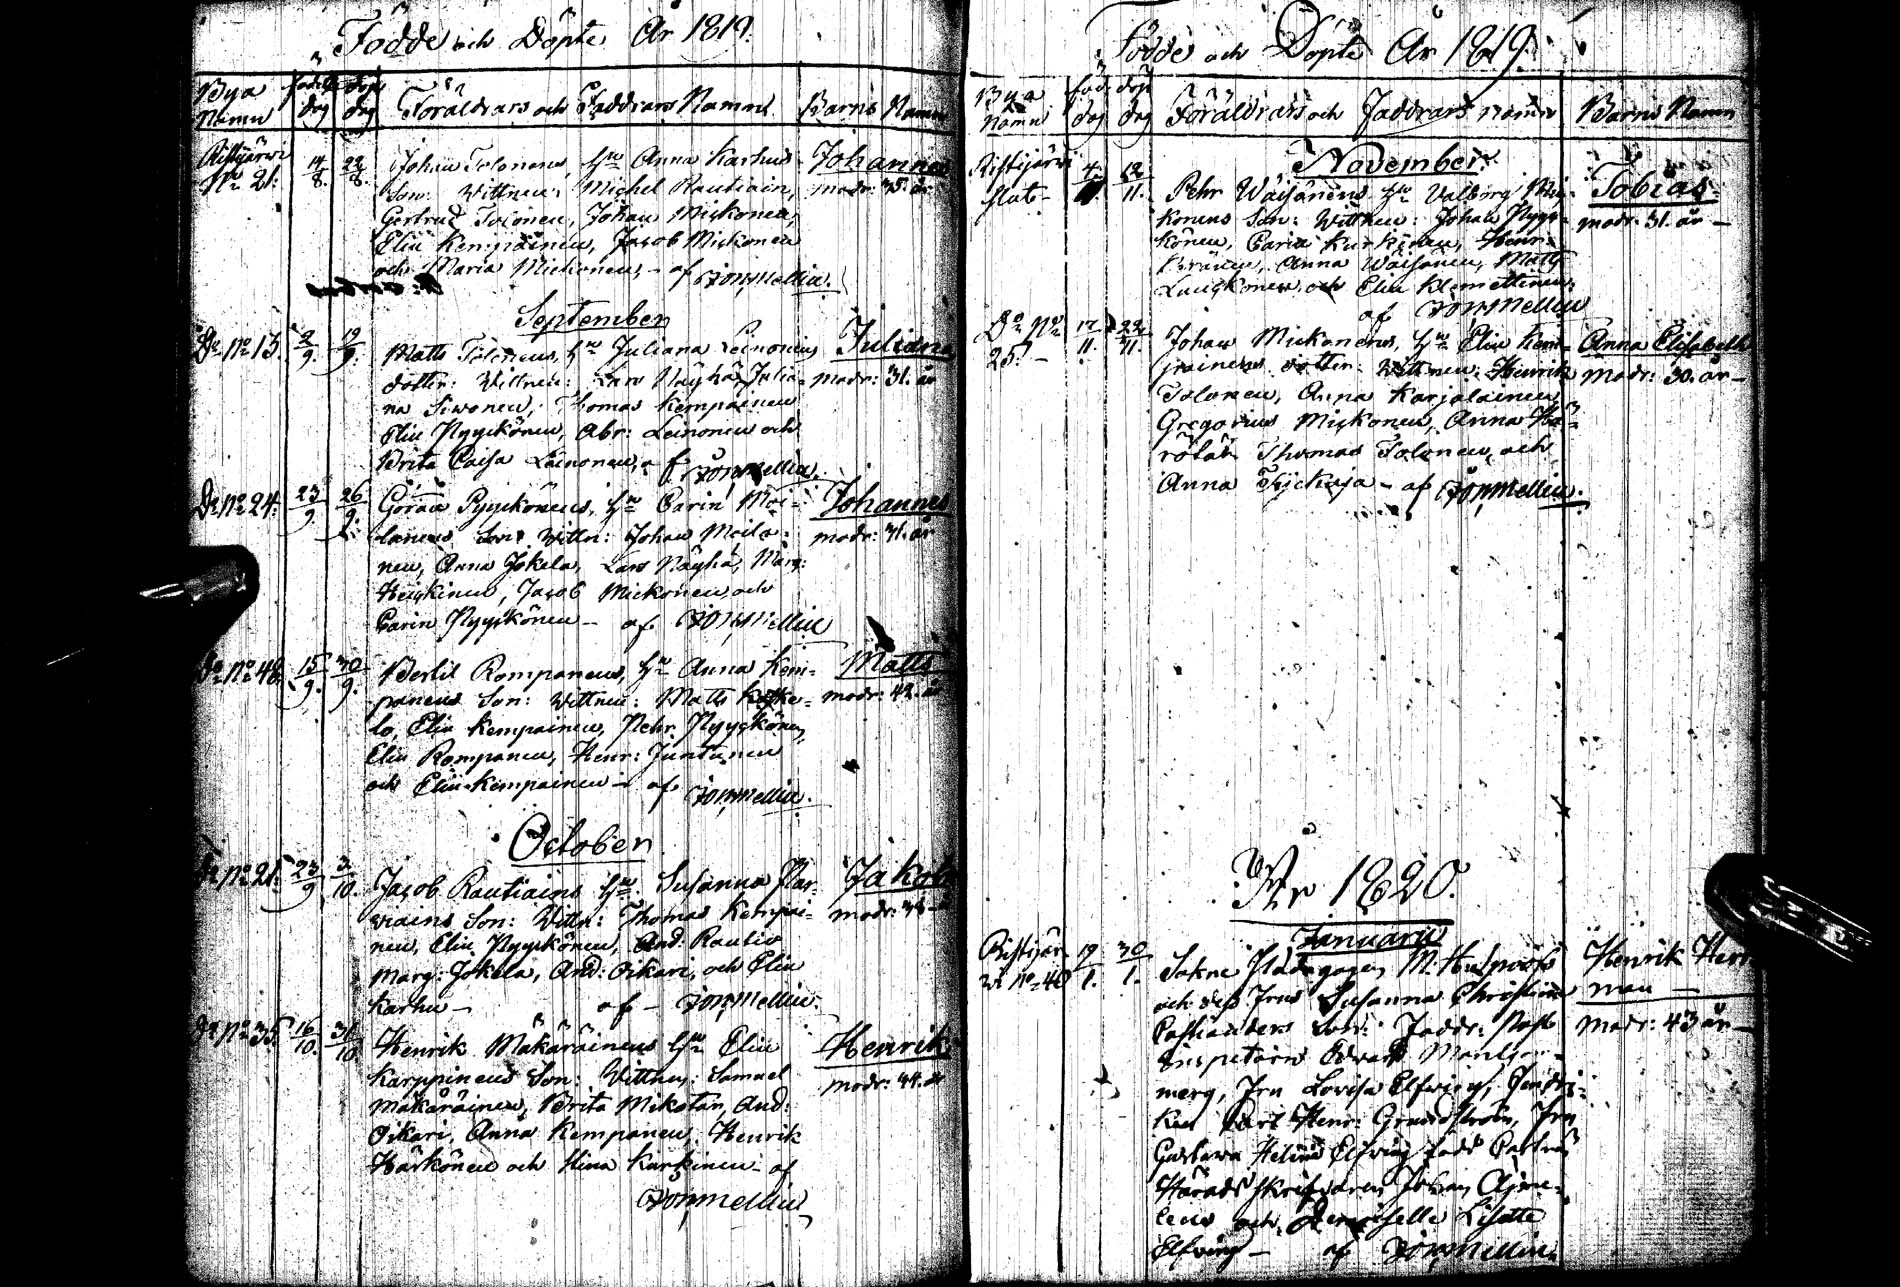 Födde och Döpte År 1819.
Bya Namn
födelse dag
döp dag
Föräldrars och Faddrars Namn
Barns Namn
Ristijärvi No 21.
14/8. 22/8.
Johan Tolonens, hu Anna Karhus
Son: Wittnen: Michel Rautiain,
Gertrud Tolonen, Johan Mickonen,
Elin Kempainen, Jacob Mickonen
och Maria Mickonen, - af Mellin.
Johannes
modr: 35. år
September
Do No 13. 2/9. 19/9.
Matts Tolonens, hu Juliana Leinonens
dotter: Wittnen: Lars Näyhä, Julia-
na Siwonen, Thomas Kempainen
Elin Nyyckönen, Abr: Leinonen och
Brita Caisa Leinonen, af Mellin.
Juliana
modr: 31. år
Do No 24. 23/9. 26/9.
Göran Pyyckönens, hu Carin Moi-
lanens Son: Wittn: Johan Moila-
nen, Anna Jokela, Lars Näyhä, Marg:
Heickinen, Jacob Mickonen och
Carin Nyyckönen - af Mellin
Johannes
modr: 31. år
Do No 48. 15/9. 30/9.
Bertil Rompanens, hu Anna Kem-
panens Son: Wittnen: Matts Koske-
lo, Elin Kempainen, Pehr Nyyckönen,
Elin Rompanen, Henr: Juntunen
och Elin Kempainen - af Mellin.
Matts
modr: 42. år
October
Do No 21. 23/9 3/10.
Jacob Rautiains hu Susanna Kar-
viains Son: Wittn: Thomas Kempai-
nen, Elin Nyyckönen, And. Rautio
Marg: Jokela, And: Oikari, och Elin
Karhu - af - Mellin.
Jakob
modr:
Do No 35. 16/10. 31/10.
Henrik Mäkäräinens hu Elin
Karppinens Son: Wittnen: Samuel
Mäkäräinen, Brita Mikotar, And:
Oikari, Anna Kempanen, Henrik
Härkönen och Stina Karkinen - af
Mellin
Henrik
modr: 44. år
Födde och Döpte År 1819.
Bya Namn
föd dag
döp dag
Föräldrars och Faddrars namn
Barns Namn
November
Ristijärvi
12/11.
Pehr Wäisänens hu Valborg Mic-
konens Son: Wittnen: Johan Nyyc-
könen, Carin Kurkinen, Henr:
Anna Wäisänen, Matts
Lauckonen och Elin Klemettinen
af Mellin
Tobias.
modr: 31. år -
Do No 25. - 17/11. 22/11.
Johan Mickonens, hu Elin Kem-
painens dotter: Wittnen: Henrik
Tolonen, Anna Karjalainen
Gregorius Mickonen, Anna Hä-
rötär Thomas Tolonen, och
Anna - af Mellin.
Anna Elisabeth
Modr: 30. år -
År 1820.
Januarii
Ristijär-
vi No 40 19/1. 30/1.
Sokne Pädagogen M.
och dess Frus Susanna Christina
Son: Faddr: Post
Inspectorn Edvard
Fru Lovisa Elfving,
Carl Henr: Grandström, Fru
Gustava Helena Elfving född
Häradsskrifvaren Johan
och Demoiselle Lisette
Elfving - af Mellin.
Henrik Herr-
man -
Modr: 43 år -